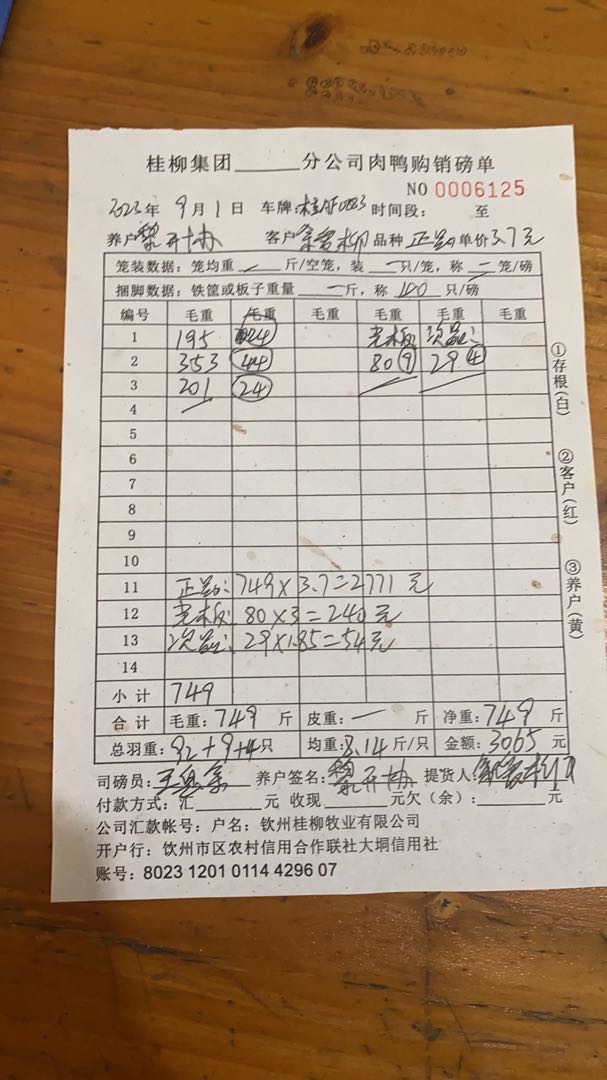 桂柳集团______分公司肉鸭购销磅单
NO 0006125
2023年 9月1日 车牌: 时间段: 至
养户 黎开协 客户 品种 正品 单价 3.7元
笼装数据: 笼均重 — 斤/空笼, 装 — 只/笼, 称 — 笼/磅
捆脚数据: 铁筐或板子重量 — 斤, 称 100 只/磅
编号 毛重 毛重 毛重 毛重 毛重 毛重
1 195 24 老板: 次品:
2 353 44 80 9 29 4
3 201 24
4
5
6
7
8
9
10
11 正品: 749×3.7=2771元
12 老板: 80×3=240元
13 次品: 29×1.85=54元
14
小计 749
合计 毛重: 749 斤 皮重: — 斤 净重: 749 斤
总羽重: 92+9+4只 均重: 8.14斤/只 金额: 3065元
司磅员: 养户签名: 黎开协 提货人:
付款方式: 汇______元 收现______元欠(余): ______元
公司汇款帐号: 户名: 钦州桂柳牧业有限公司
开户行: 钦州市区农村信用合作联社大垌信用社
账号: 8023 1201 0114 4296 07
①存根(白)
②客户(红)
③养户(黄)